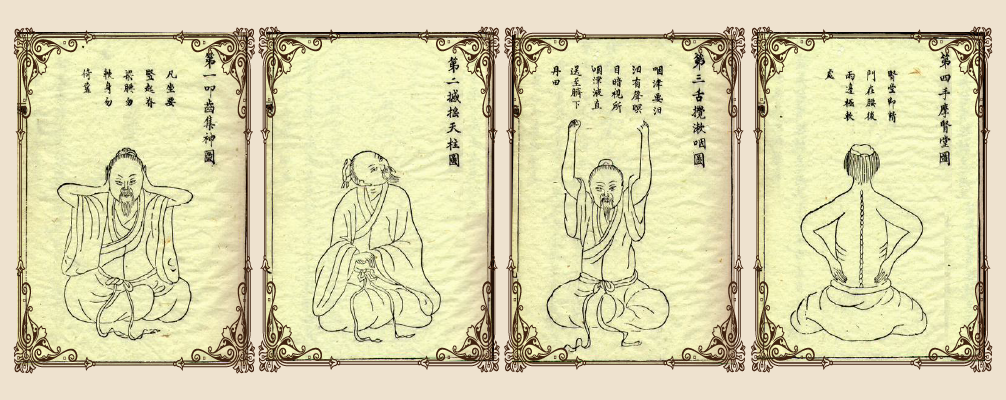 第一叩齒集神圖
凡坐要
竪起脊
梁腰勿
軟身勿
倚靠
第二撼搖天柱圖
第三舌攪漱咽圖
咽津要汨
汨有聲暝
目時視所
咽津液直
送至臍下
丹田
第四手摩腎堂圖
腎堂即精
門在腰後
兩邊極軟
處